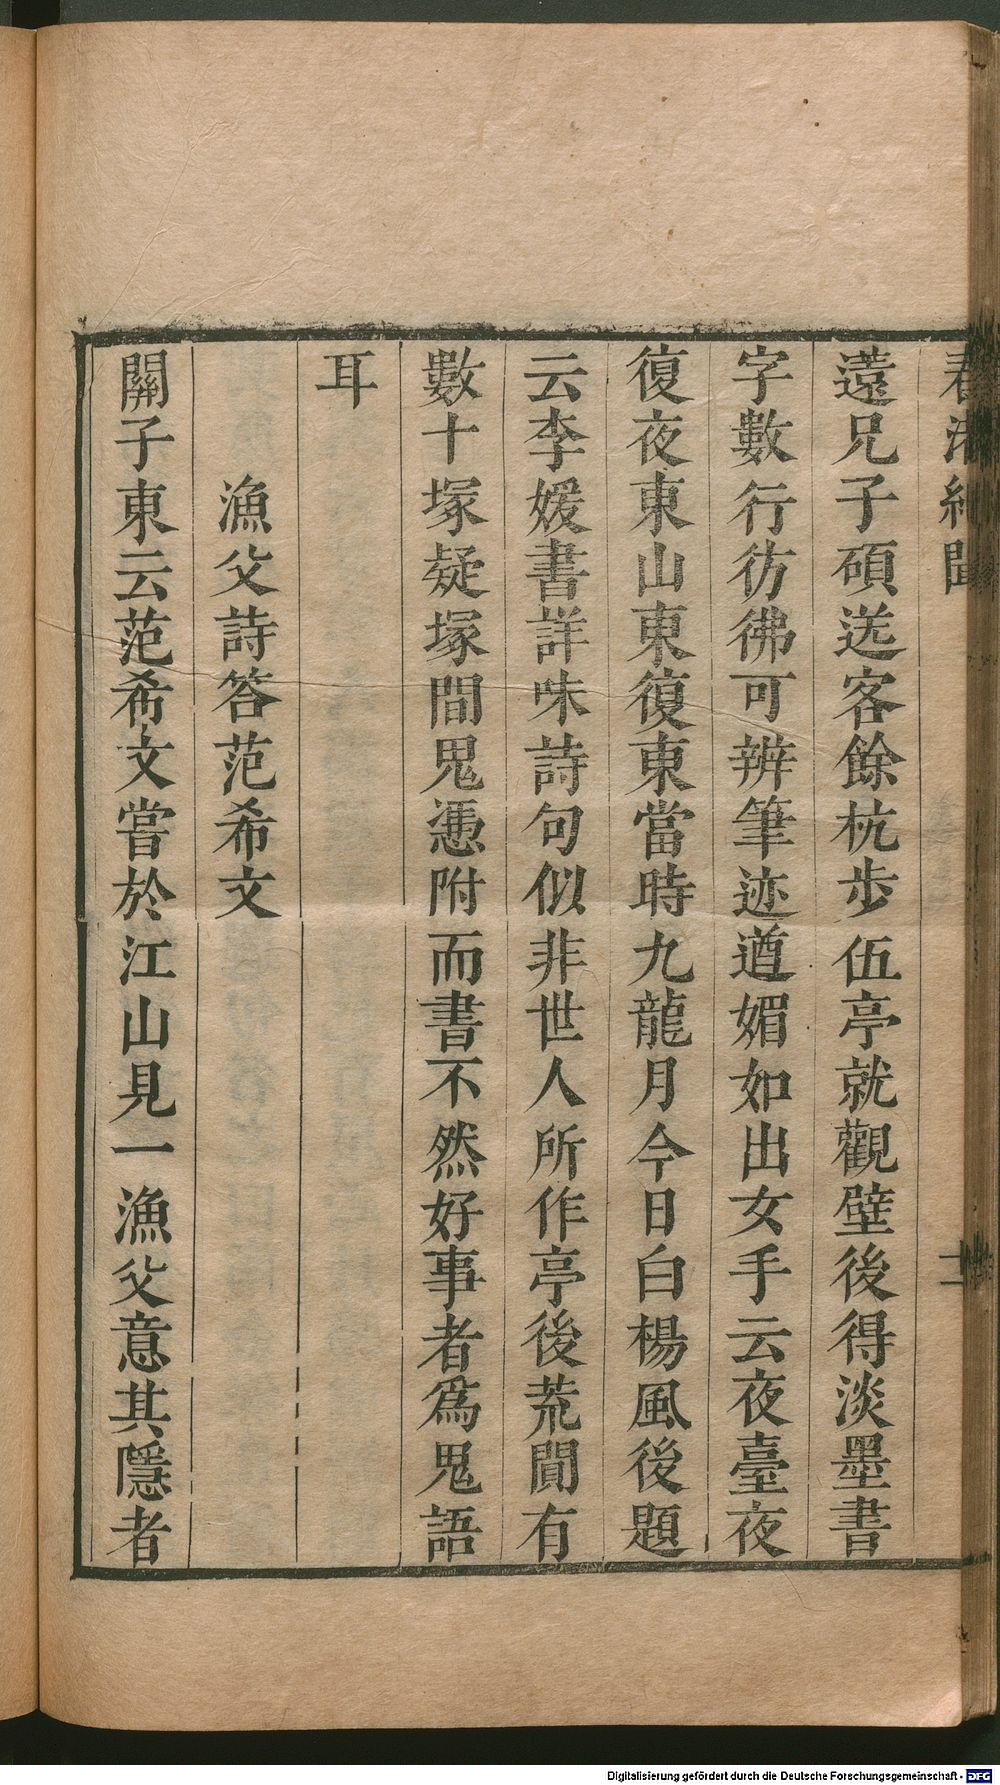 春渚紀聞 二
薳兄子碩送客餘杭步伍亭就觀壁後得淡墨書
字數行彷彿可辨筆迹遒媚如出女手云夜臺夜
復夜東山東復東當時九龍月今日白楊風後題
云李媛書詳味詩句似非世人所作亭後荒閴有
數十塚疑塚間鬼憑附而書不然好事者為鬼語
耳
漁父詩答范希文
關子東云范希文嘗於江山見一漁父意其隱者
Digitalisierung gefördert durch die Deutsche Forschungsgemeinschaft - DFG